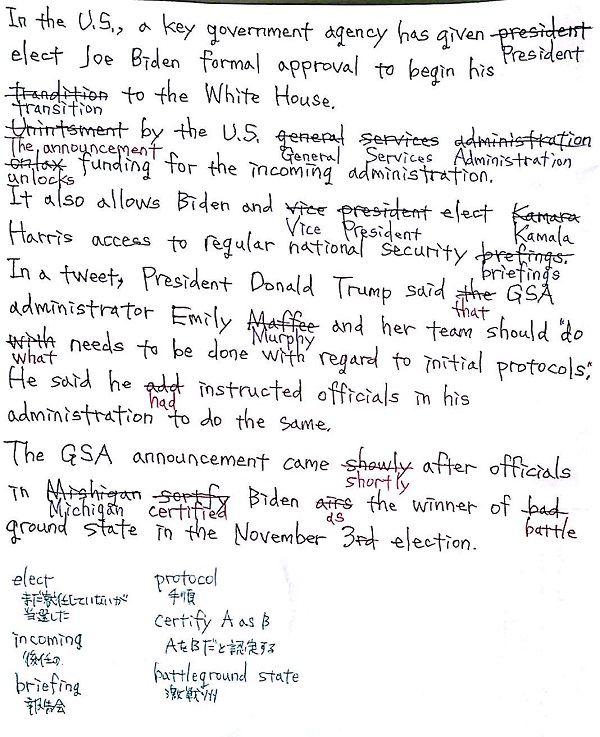 In the U.S., a key government agency has given president
elect Joe Biden formal approval to begin his President
trandition to the White House.
transition
Unintsment by the U.S. general services administration
The announcement General Services Administration
ontax funding for the incoming administration.
unlocks
It also allows Biden and vice president elect Kamara
Vice President Kamala
Harris access to regular national security prefings.
briefings
In a tweet, President Donald Trump said the GSA
that
administrator Emily Maffee and her team should "do
Murphy
with needs to be done with regard to initial protocols."
what
He said he add instructed officials in his
had
administration to do the same.
The GSA announcement came showly after officials
shortly
in Mighigan sortify Biden airs the winner of bad
Michigan certified as battle
ground state in the November 3rd election.
elect
まだ就任していないが
当選した
incoming
後任の
briefing
報告会
protocol
手順
certify A as B
AをBだと認定する
battleground state
激戦州